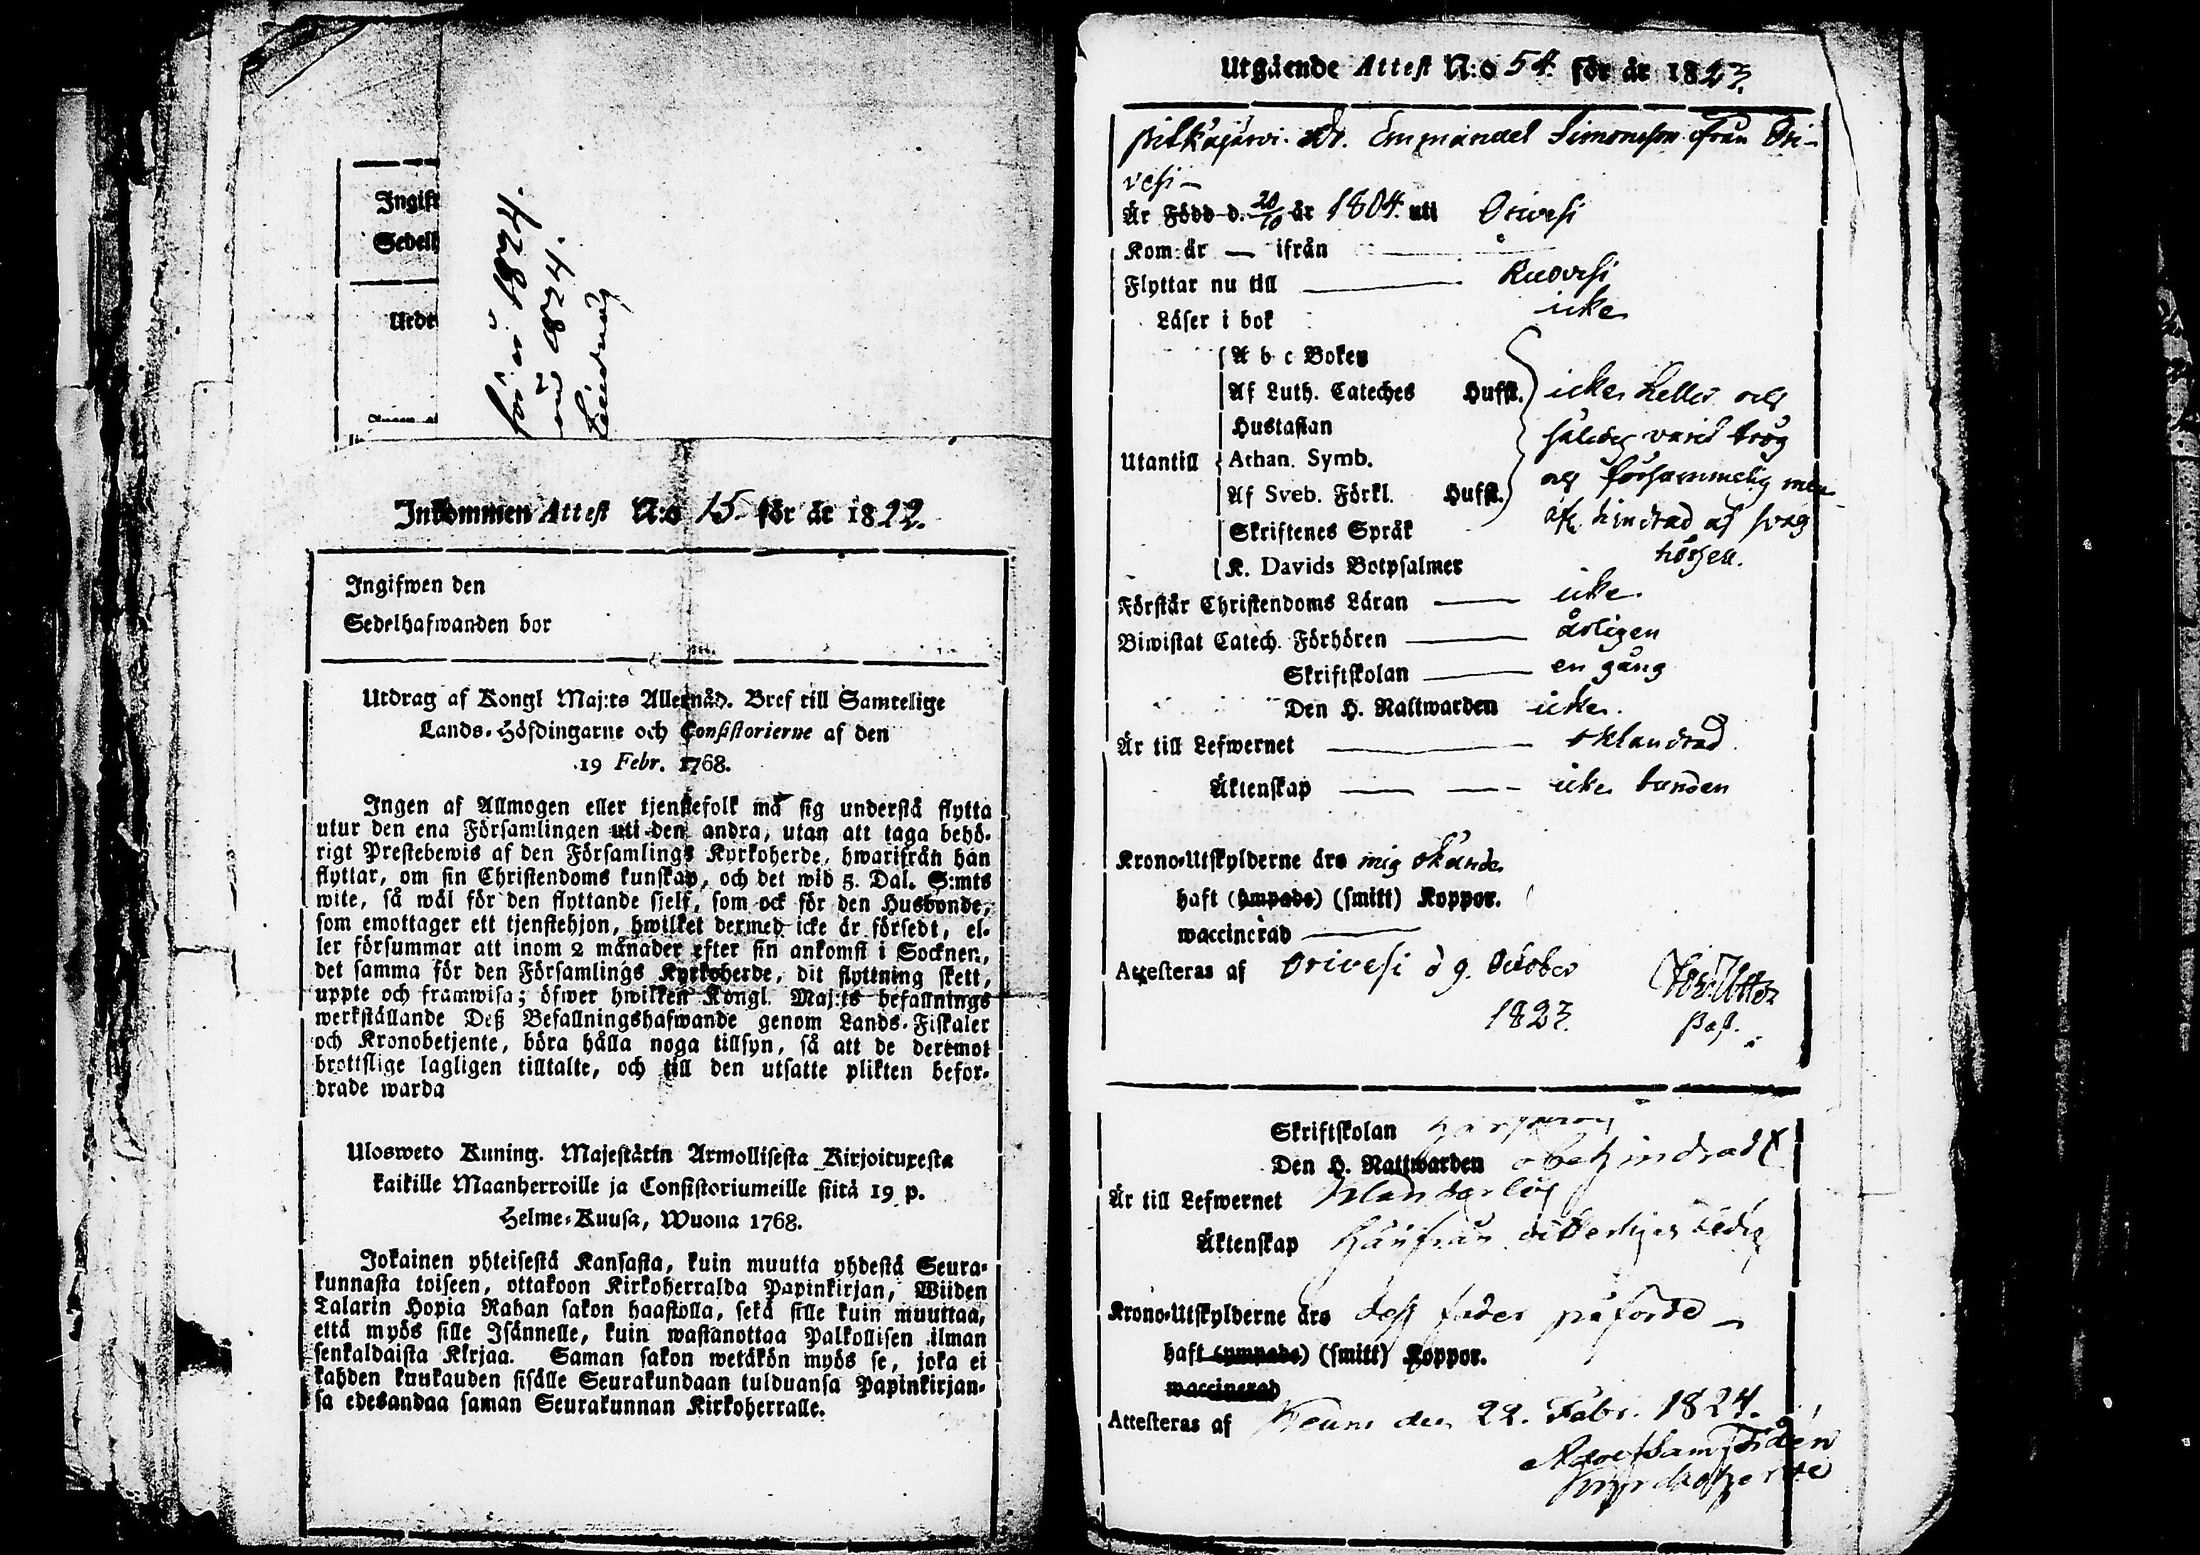 Ingift
Sedelh
Utdr
1824.
1824.
Inkommen Attest N:o 15. för år 1822.
Ingifwen den
Sedelhafwanden bor
Utdrag af Kongl Maj:ts Allernåd. Bref till Samtelige
Lands-Höfdingarne och Consistorierne af den
19 Febr. 1768.
Ingen af Allmogen eller tjenstefolk må sig understå flytta
utur den ena Församlingen uti den andra, utan att taga behö-
rigt Prestebewis af den Församlings Kyrkoherde, hwarifrån han
flyttar, om sin Christendoms kunskap, och det wid 5. Dal. S:mts
wite, så wäl för den flyttande sielf, som ock för den Husbonde,
som emottager ett tjenstehjon, hwilket dermed icke är försedt, el-
ler försummar att inom 2 månader efter sin ankomst i Socknen,
det samma för den Församlings Kyrkoherde, dit flyttning skett,
uppte och framwisa; öfwer hwilken Kongl. Maj:ts befallnings
werkställande Deß Befallningshafwande genom Lands-Fiskaler
och Kronobetjente, böra hålla noga tillsyn, så att de deremot
brottslige lagligen tilltalte, och till den utsatte plikten befor-
drade warda
Ulosweto Kuning. Majestätin Armollisesta Kirjoituxesta
kaikille Maanherroille ja Consistoriumeille siitä 19 p.
Helme-Kuusa, Wuona 1768.
Jokainen yhteisestä Kansasta, kuin muutta yhdestä Seura-
kunnasta toiseen, ottakoon Kirkoherralda Papinkirjan, Wiiden
Talarin Hopia Rahan sakon haastolla, sekä sille kuin muuttaa,
että myös sille Isännelle, kuin wastanottaa Palkollisen ilman
senkaldaista Kirjaa. Saman sakon wetäkön myös se, joka ei
kahden kuukauden sisälle Seurakundaan tulduansa Papinkirjan-
sa edesandaa saman Seurakunnan Kirkoherralle.
Utgående Attest N:o 54. för år 1823.
Pitkäjärvi Dr. Emmanuel Simonsson från Ori-
vesi
Är Född d. 20/10 år 1804. uti Orivesi
Kom: år — ifrån
Flyttar nu till Ruovesi
Läser i bok icke
A b c Boken
Af Luth. Cateches Hufst. icke heller och
Hustaflan således varit trög
Utantill Athan. Symb.
Af Sveb. Förkl. Hufst. och försummelig men
Skriftenes Språk hindrad af svag
K. Davids Botpsalmer hörsell.
Förstår Christendoms Läran icke.
Biwistat Catech. Förhören årligen
Skriftskolan en gång
Den H. Nattwarden icke.
Är till Lefwernet oklandrad
Äktenskap icke bunden
Krono-Utskylderne äro mig okända
haft (ympade) (smitt) Koppor.
waccinerad
Attesteras af Orivesi d 9. October
1823.
Past.
Skriftskolan
Den H. Nattwarden obehindradt
Är till Lefwernet klanderlös
Äktenskap härifrån ledig
Krono-Utskylderne äro dess fader påförde
haft (ympade) (smitt) Koppor.
waccinerad
Attesteras af Keuru den 22. Febr. 1824.